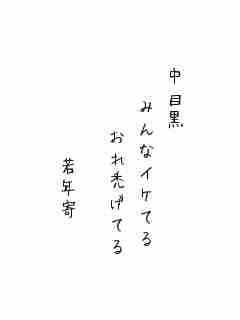 中目黒
みんなイケてる
おれ禿げてる
若年寄